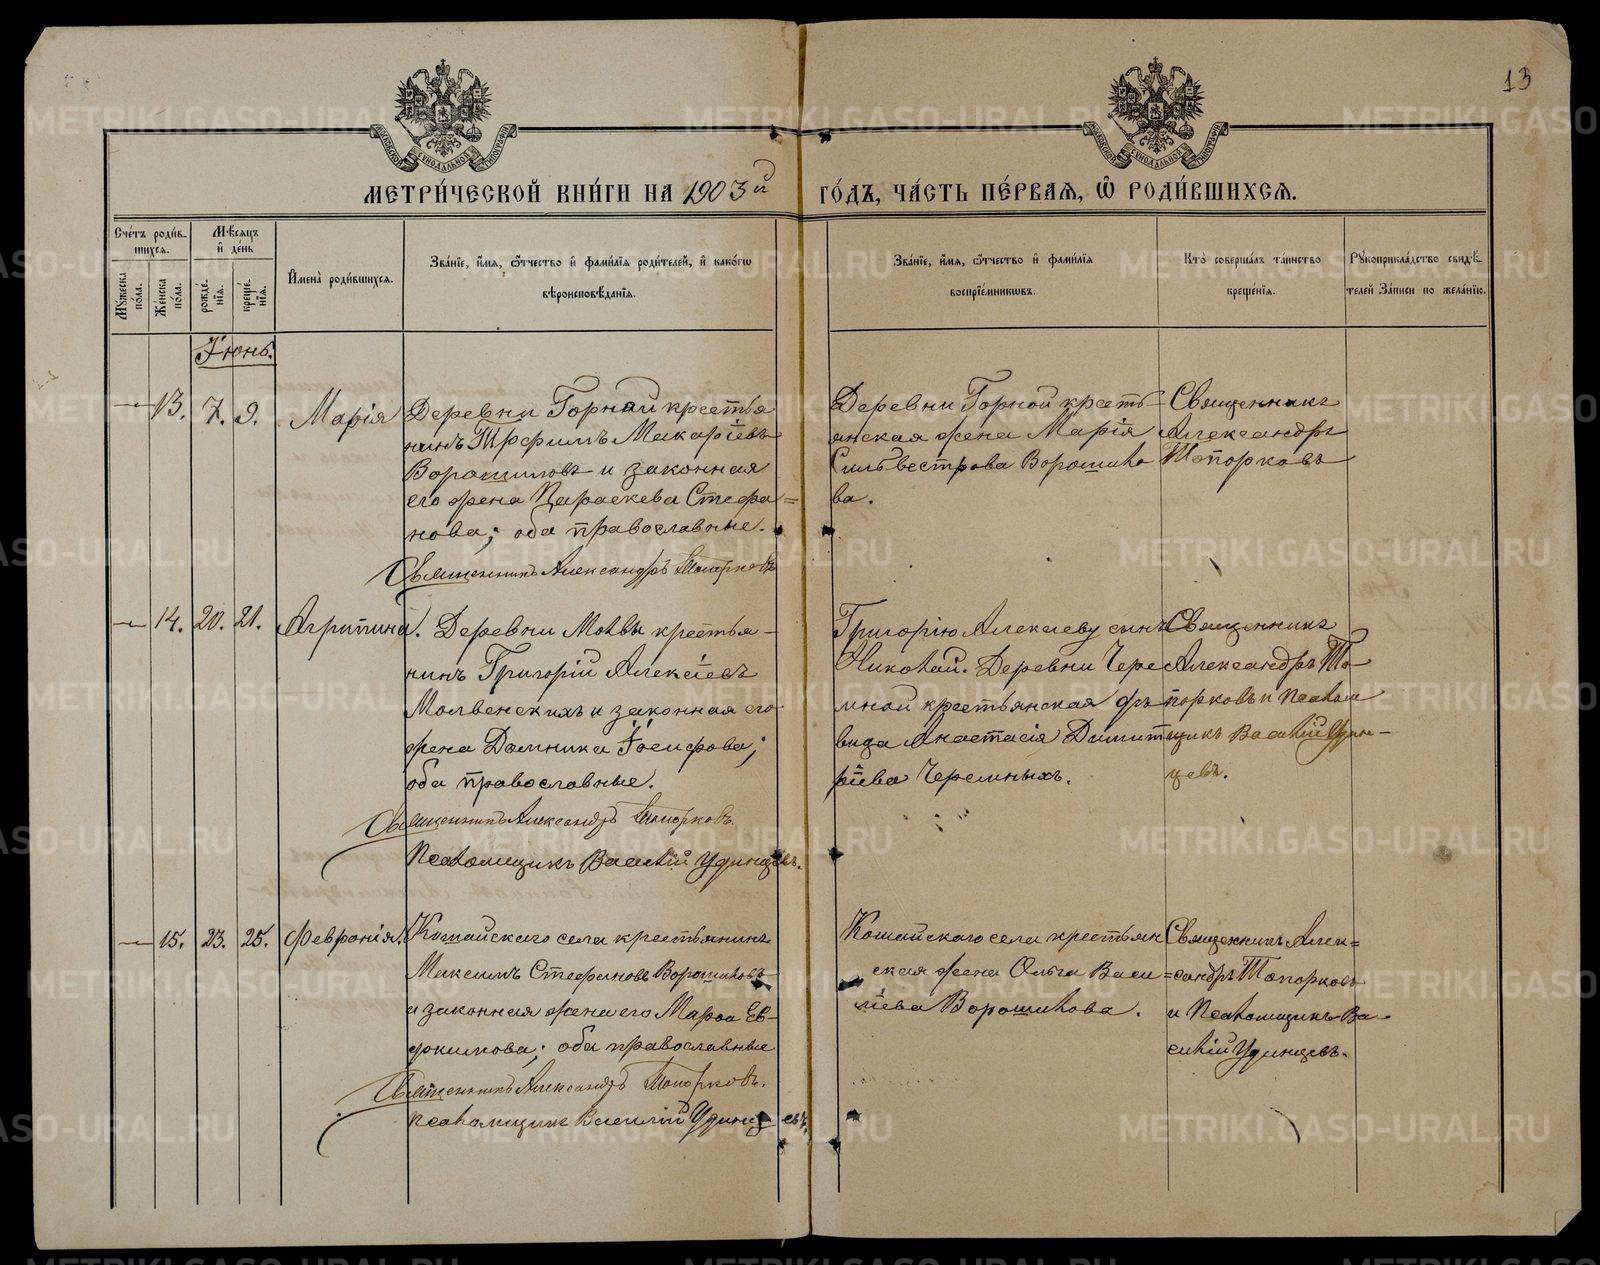 13
МОСКОВСКОЙ СѴНОДАЛЬНОЙ ТИПОГРАФІИ
МОСКОВСКОЙ СѴНОДАЛЬНОЙ ТИПОГРАФІИ
МЕТРИ́ЧЕСКОЙ КНИ́ГИ НА 1903й ГО́ДЪ, ЧА́СТЬ ПЕ́РВАЯ, Ѿ РОДИ́ВШИХСЯ.
Сче́тъ роди́в-
шихся.
Мꙋ́жеска по́ла.
Же́нска по́ла.
Мѣ́сяцъ
и҆ де́нь
рожде́-
нїя.
креще́-
нїя.
И҆мена̀ роди́вшихся.
Зва́нїе, и҆́мя, ѻ҆́тчество и҆ фами́лїя роди́телей, и҆ како́гѡ
вѣроисповѣ́данїя.
Зва́нїе, и҆́мя, ѻ҆́тчество и҆ фами́лїя
воспрїе́мникѡвъ.
Кто̀ соверша́лъ та́инство
креще́нїя.
Рꙋкоприкла́дство свидѣ́-
телей за́писи по жела́нїю.
Іюнь.
— 13. 7. 9. Марія
Деревни Горной крестья
нинъ Трофимъ Макаріевъ
Ворошиловъ и законная
его жена Параскева Стефа=
нова; оба православные.
Священникъ Александръ Топорковъ
Деревни Горной кресть-
янская жена Марія
Сильвестрова Ворошило
ва.
Священникъ
Александръ
Топорковъ
— 14. 20. 21. Агрипина.
Деревни Молвы крестья-
нинъ Григорій Алексіевъ
Молвенскихъ и законная его
жена Домника Іосифова;
оба православные.
Священникъ Александръ Топорковъ.
Псаломщикъ Василій Удинцевъ.
Григорію Алексиеву сынъ
Николай. Деревни Чере
мной крестьянская дѣ
вица Анастасія Димит
ріева Черемныхъ.
Священникъ
Александръ То
порковъ и Псалом
щикъ Василій Удин-
цевъ.
— 15. 23. 25. Февронія.
Кошайскаго села крестьянинъ
Максимъ Стефановъ Ворошиловъ
и законная жена его Марѳа Ев-
докимова; оба православные
Священникъ Александръ Топорковъ.
псаломщикъ Василій Удинцевъ.
Кошайскаго села крестьян
ская жена Ольга Васи=
ліева Ворошилова.
Священникъ Алек=
сандръ Топорковъ
и Псаломщикъ Ва-
силій Удинцевъ.
METRIKI.GASO-URAL.RU